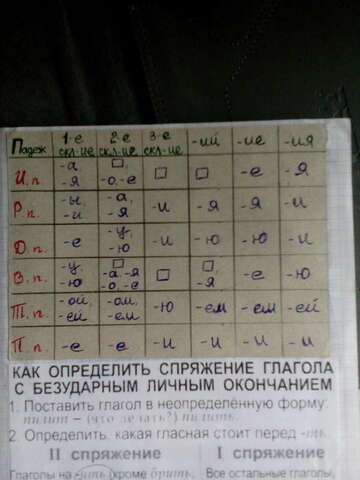 Падеж 1-е скл-ие 2-е скл-ие 3-е скл-ие -ий -ие -ия
И.п. -а, -я □ -о,-е □ □ -е -я
Р.п. -ы, -и -а, -я -и -я -я -и
Д.п. -е -у, -ю -и -ю -ю -и
В.п. -у, -ю □ -а,-я -о,-е □ □, -я -е -ю
Т.п. -ой, -ей -ом, -ем -ю -ем -ем -ей
П.п. -е -е -и -и -и -и
КАК ОПРЕДЕЛИТЬ СПРЯЖЕНИЕ ГЛАГОЛА
С БЕЗУДАРНЫМ ЛИЧНЫМ ОКОНЧАНИЕМ
1. Поставить глагол в неопределённую форму:
пилит – (что делать?) пилить.
2. Определить, какая гласная стоит перед -ть.
II спряжение I спряжение
Глаголы на -ить (кроме брить, Все остальные глаголы,